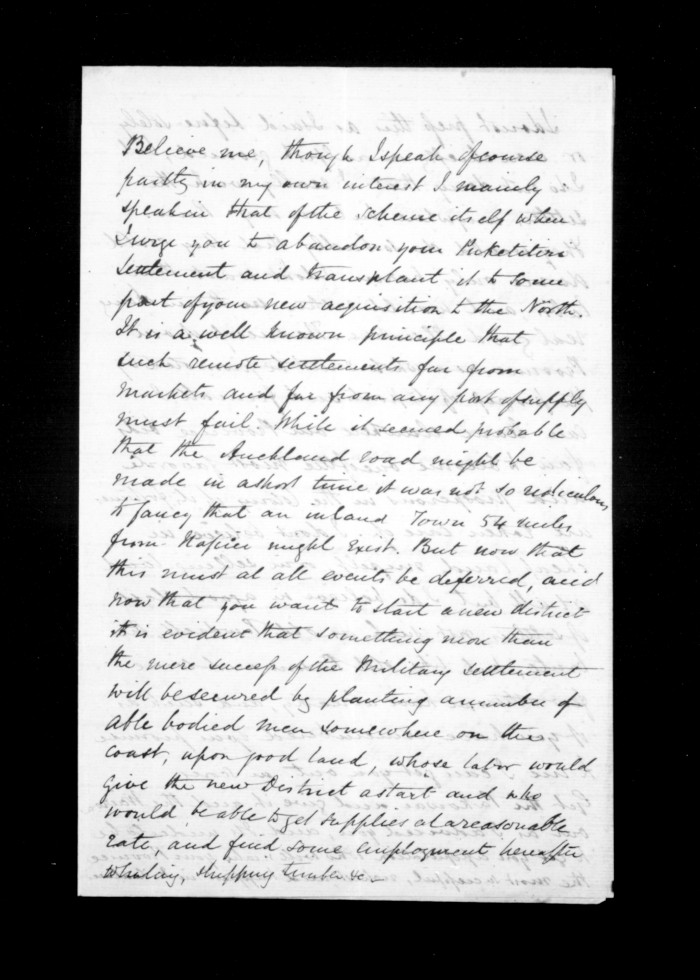 Believe me, though I speak of course
partly in my own interest I mainly
speak in that of the scheme itself when
I urge you to abandon your Puketitiri
Settlement and transplant it to some
part of your new acquisition to the North.
It is a well known principle that
such remote settlements far from
markets and far from any port of supply
must fail. While it seemed probable
that the Auckland road might be
made in a short time it was not so ridiculous
to fancy that an inland Town 54 miles
from Napier might exist. But now that
this must at all events be deferred, and
now that you want to start a new district
it is evident that something more than
the mere success of the Military settlement
will be secured by planting a number of
able bodied men somewhere on the
coast, upon good land, whose labor would
give the new District a start and who
would be able to get supplies at a reasonable
rate, and find some employment hereafter
whaling, shipping timber &c -